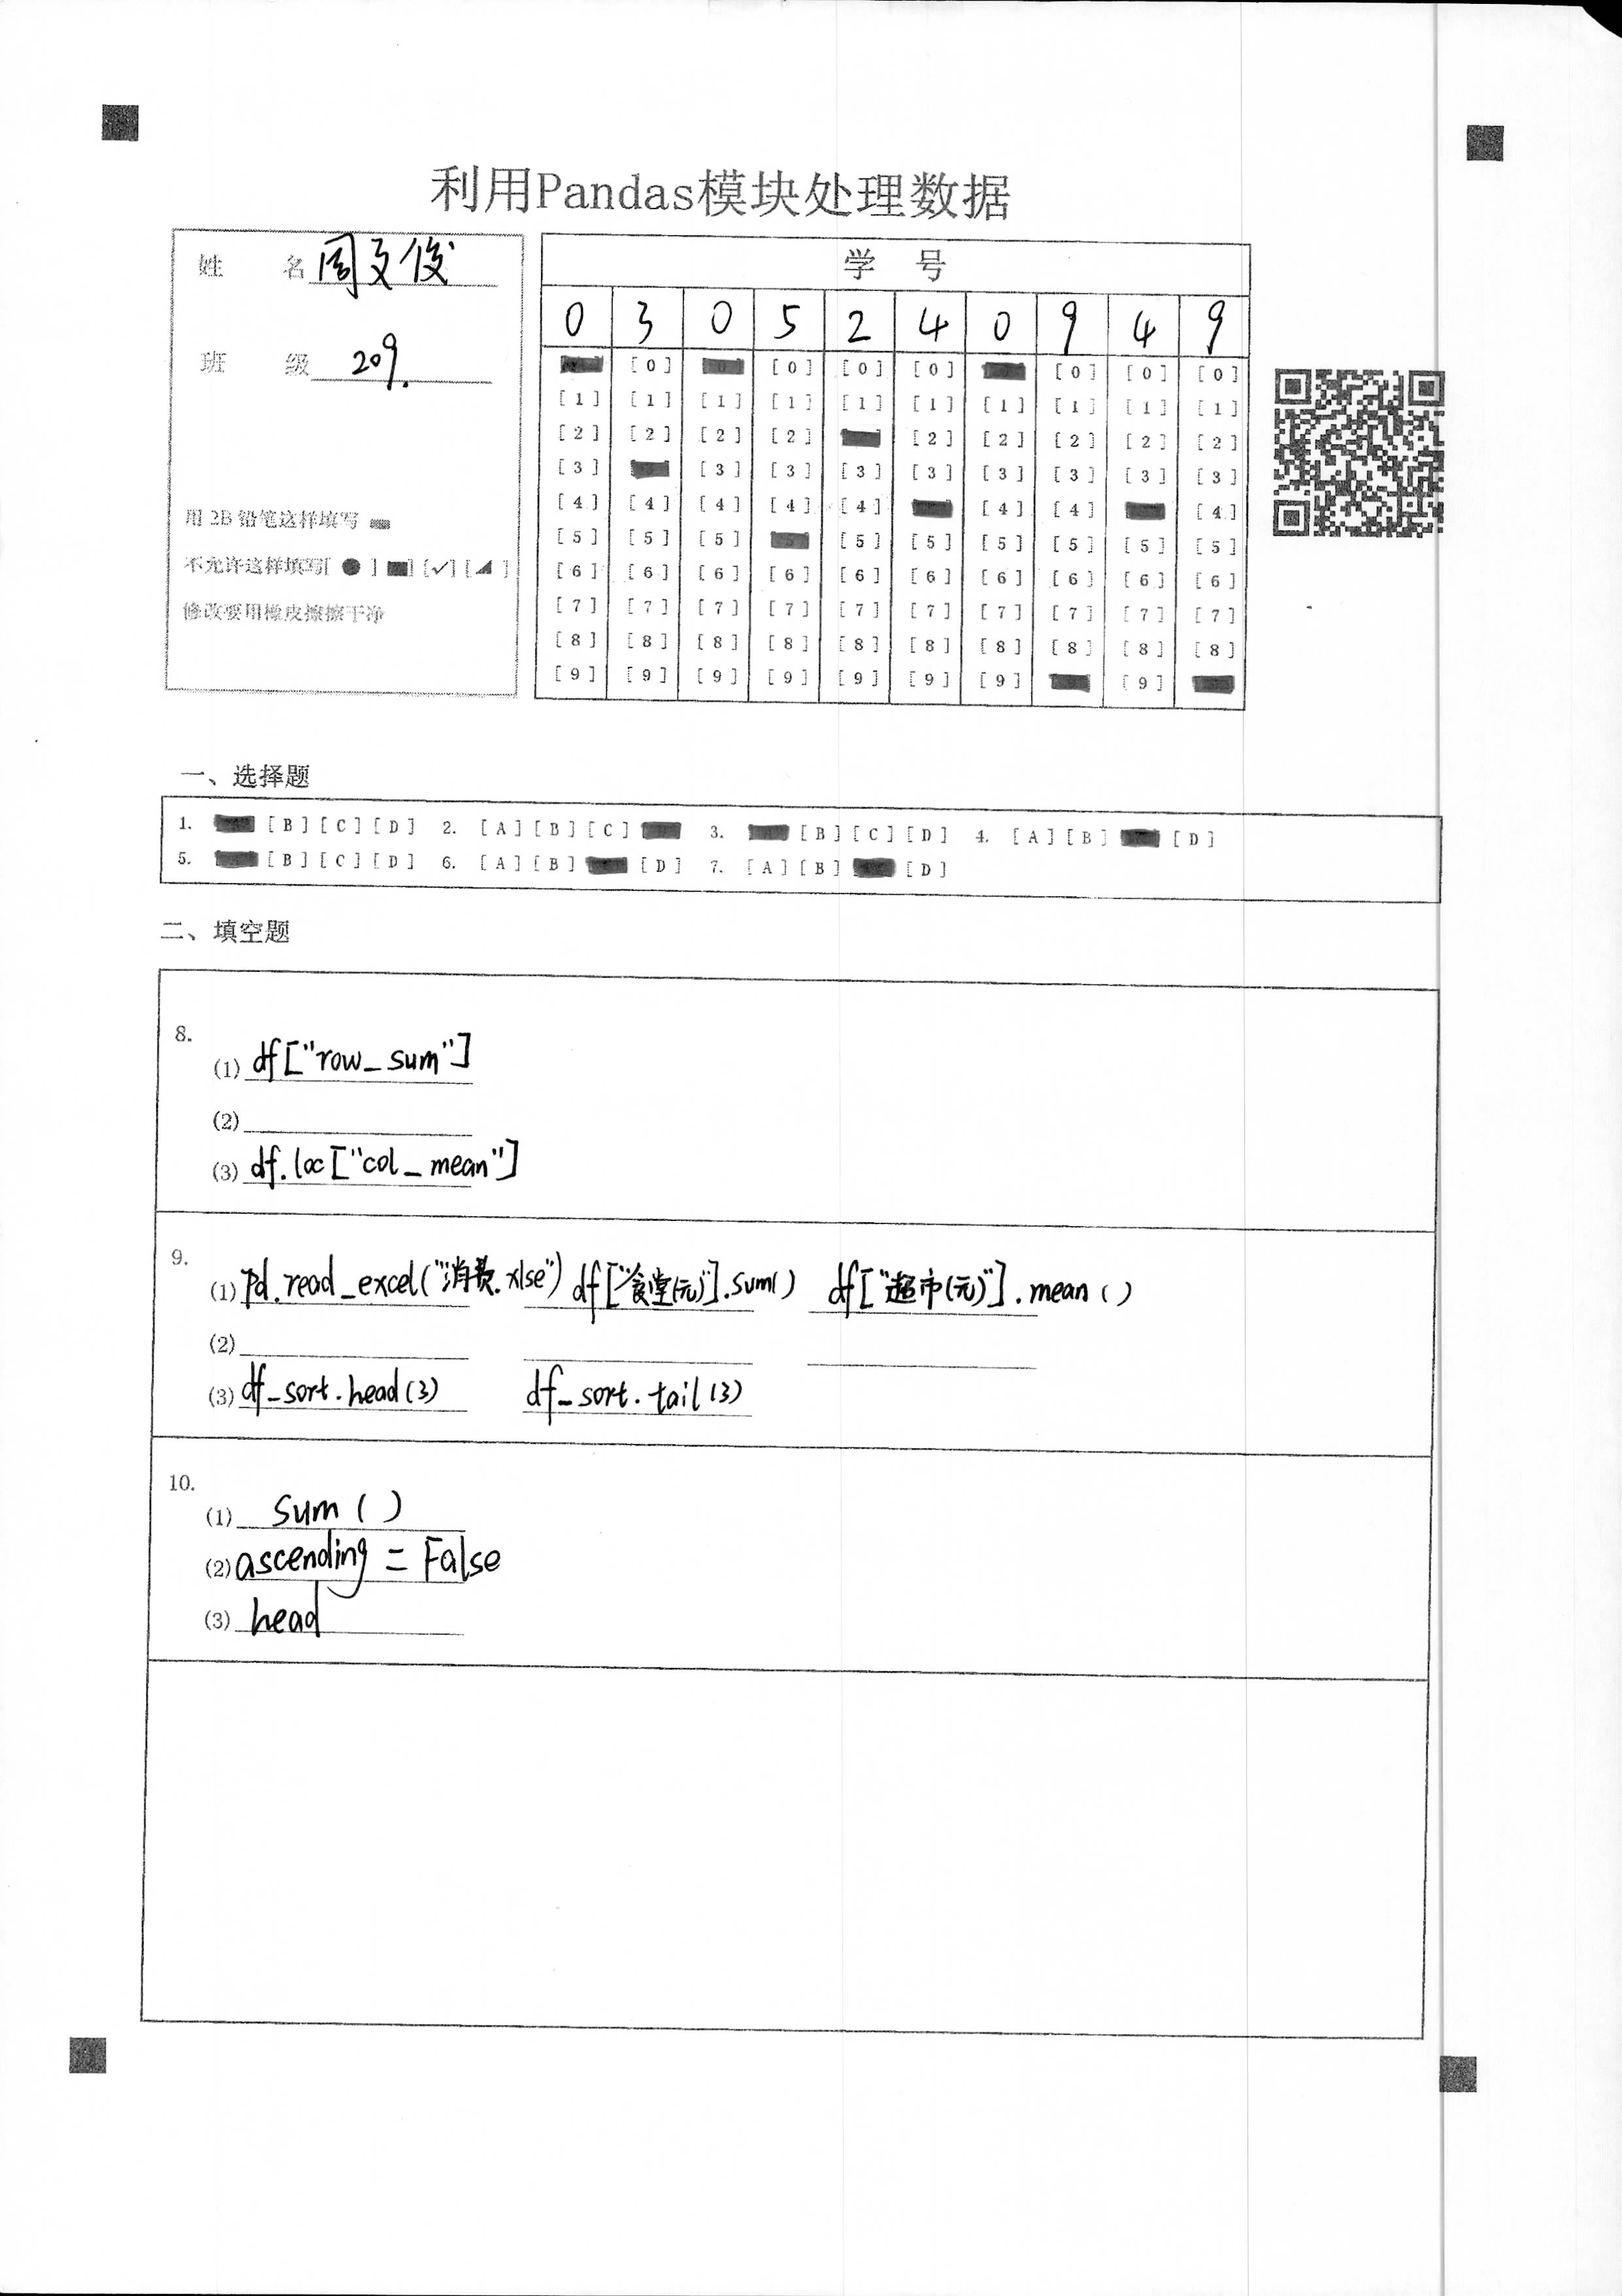 利用Pandas模块处理数据
姓 名 周文俊
班 级 209.
用 2B 铅笔这样填写
不允许这样填写[ ● ] [■] [✓] [◢ ]
修改要用橡皮擦擦干净
学 号
0 3 0 5 2 4 0 9 4 9
[0] [0] [0] [0] [0] [0] [0]
[1] [1] [1] [1] [1] [1] [1] [1] [1] [1]
[2] [2] [2] [2] [2] [2] [2] [2] [2]
[3] [3] [3] [3] [3] [3] [3] [3] [3]
[4] [4] [4] [4] [4] [4] [4] [4]
[5] [5] [5] [5] [5] [5] [5] [5] [5]
[6] [6] [6] [6] [6] [6] [6] [6] [6] [6]
[7] [7] [7] [7] [7] [7] [7] [7] [7] [7]
[8] [8] [8] [8] [8] [8] [8] [8] [8] [8]
[9] [9] [9] [9] [9] [9] [9] [9]
一、选择题
1. [B] [C] [D] 2. [A] [B] [C] 3. [B] [C] [D] 4. [A] [B] [D]
5. [B] [C] [D] 6. [A] [B] [D] 7. [A] [B] [D]
二、填空题
8.
(1) df["row_sum"]
(2)
(3) df.loc["col_mean"]
9.
(1) pd.read_excel("消费.xlse") df["食堂(元)"].sum() df["超市(元)"].mean()
(2)
(3) df_sort.head(3) df_sort.tail(3)
10.
(1) sum()
(2) ascending = False
(3) head